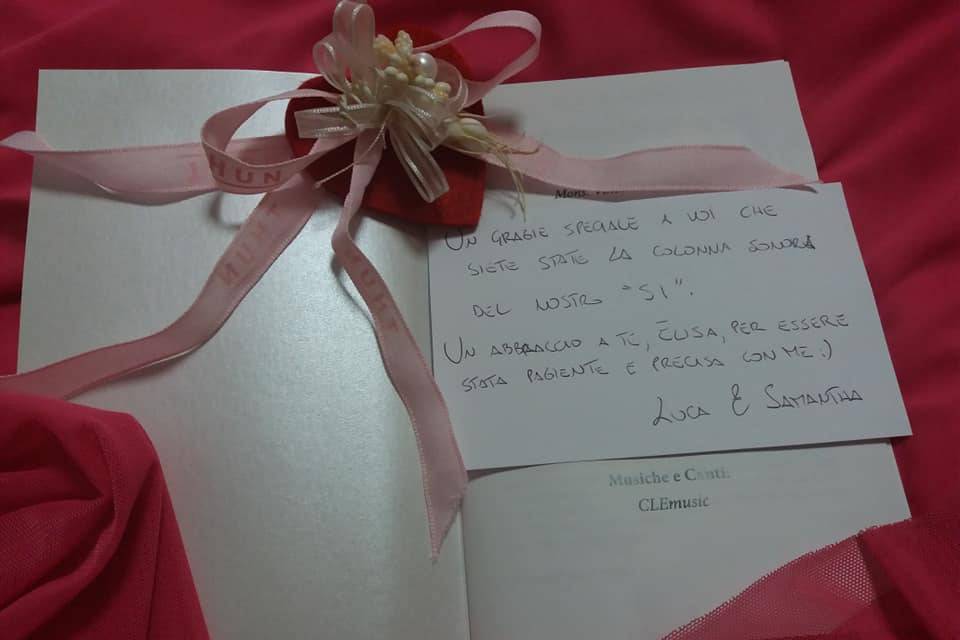 MUN
Mons.
UN GRAZIE SPECIALE A VOI CHE
SIETE STATE LA COLONNA SONORA
DEL NOSTRO "SI".
UN ABBRACCIO A TE, ELISA, PER ESSERE
STATA PAZIENTE E PRECISA CON ME :)
LUCA E SAMANTHA
Musiche e Canti:
CLEmusic